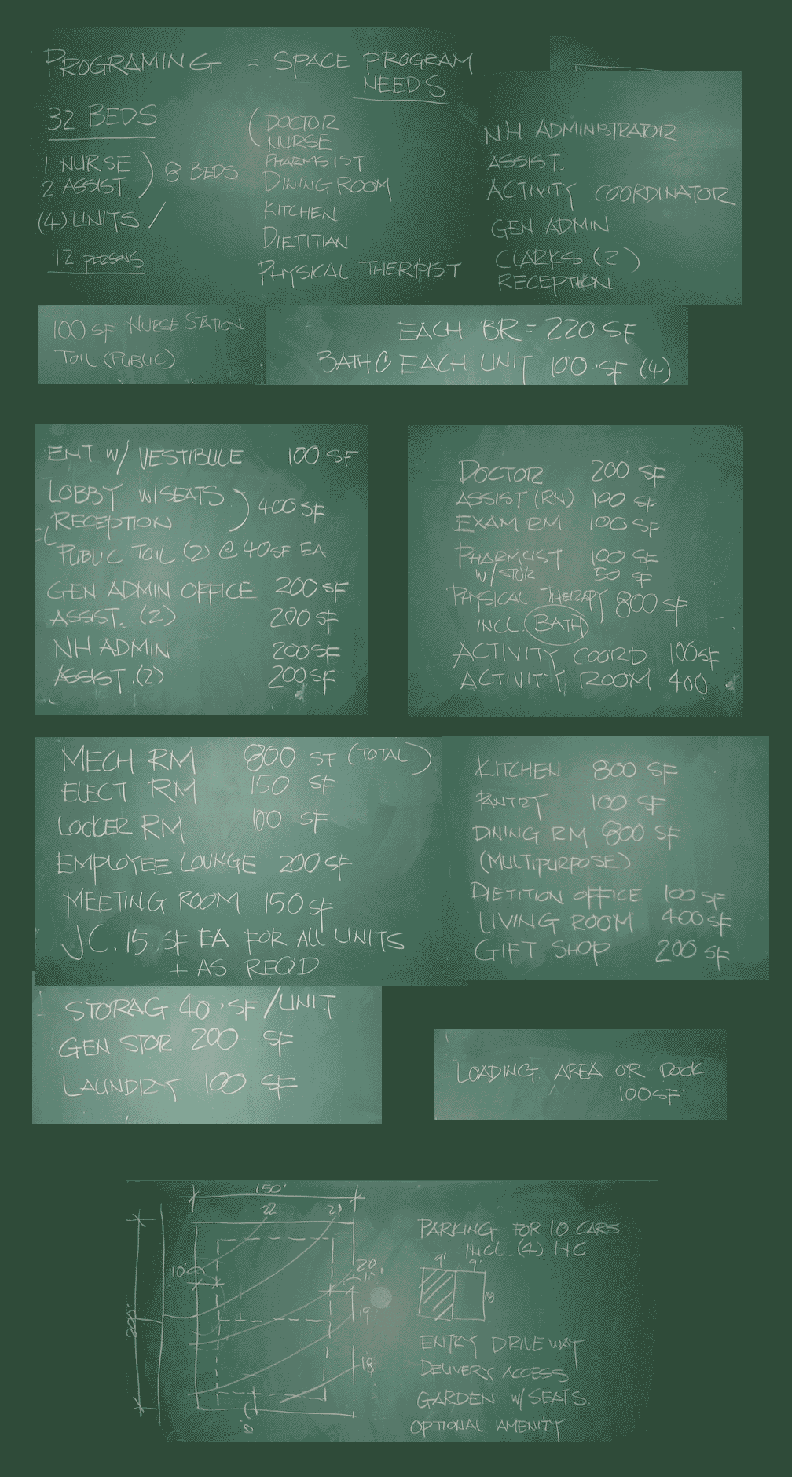 PROGRAMING - SPACE PROGRAM
NEEDS
32 BEDS
1 NURSE
2 ASSIST
8 BEDS
(4) UNITS /
12 PERSONS
DOCTOR
NURSE
PHARMSIST
DINING ROOM
KITCHEN
DIETITIAN
PHYSICAL THERPIST
NH ADMINISTRATOR
ASSIST.
ACTIVITY COORDINATOR
GEN ADMIN
CLARKS (2)
RECEPTION
100 SF NURSE STATION
TOIL (PUBLIC)
EACH BR = 220 SF
BATH @ EACH UNIT 100 SF (4)
ENT W/ VESTIBULE 100 SF
LOBBY W/SEATS
RECEPTION
400 SF
PUBLIC TOIL (2) @ 40 SF EA
GEN ADMIN OFFICE 200 SF
ASSIST. (2) 200 SF
NH ADMIN 200 SF
ASSIST. (2) 200 SF
DOCTOR 200 SF
ASSIST (RN) 100 SF
EXAM RM 100 SF
PHARMCIST 100 SF
W/STOR 50 SF
PHYSICAL THERAPY
INCL. BATH
800 SF
ACTIVITY COORD 100 SF
ACTIVITY ROOM 400
MECH RM 800 SF (TOTAL)
ELECT RM 150 SF
LOCKER RM 100 SF
EMPLOYEE LOUNGE 200 SF
MEETING ROOM 150 SF
J.C. 15 SF EA FOR ALL UNITS
+ AS REQ'D
KITCHEN 800 SF
PANTRY 100 SF
DINING RM 800 SF
(MULTIPURPOSE)
DIETITION OFFICE 100 SF
LIVING ROOM 400 SF
GIFT SHOP 200 SF
STORAG 40 SF/UNIT
GEN STOR 200 SF
LAUNDRY 100 SF
LOADING AREA OR DOCK
100 SF
150'
22 21
10
20
10'
19
18
200'
8'
PARKING FOR 10 CARS
INCL. (4) HC
9' 9'
18
ENTRY DRIVEWAY
DELIVERY ACCESS
GARDEN W/ SEATS.
OPTIONAL AMENITY